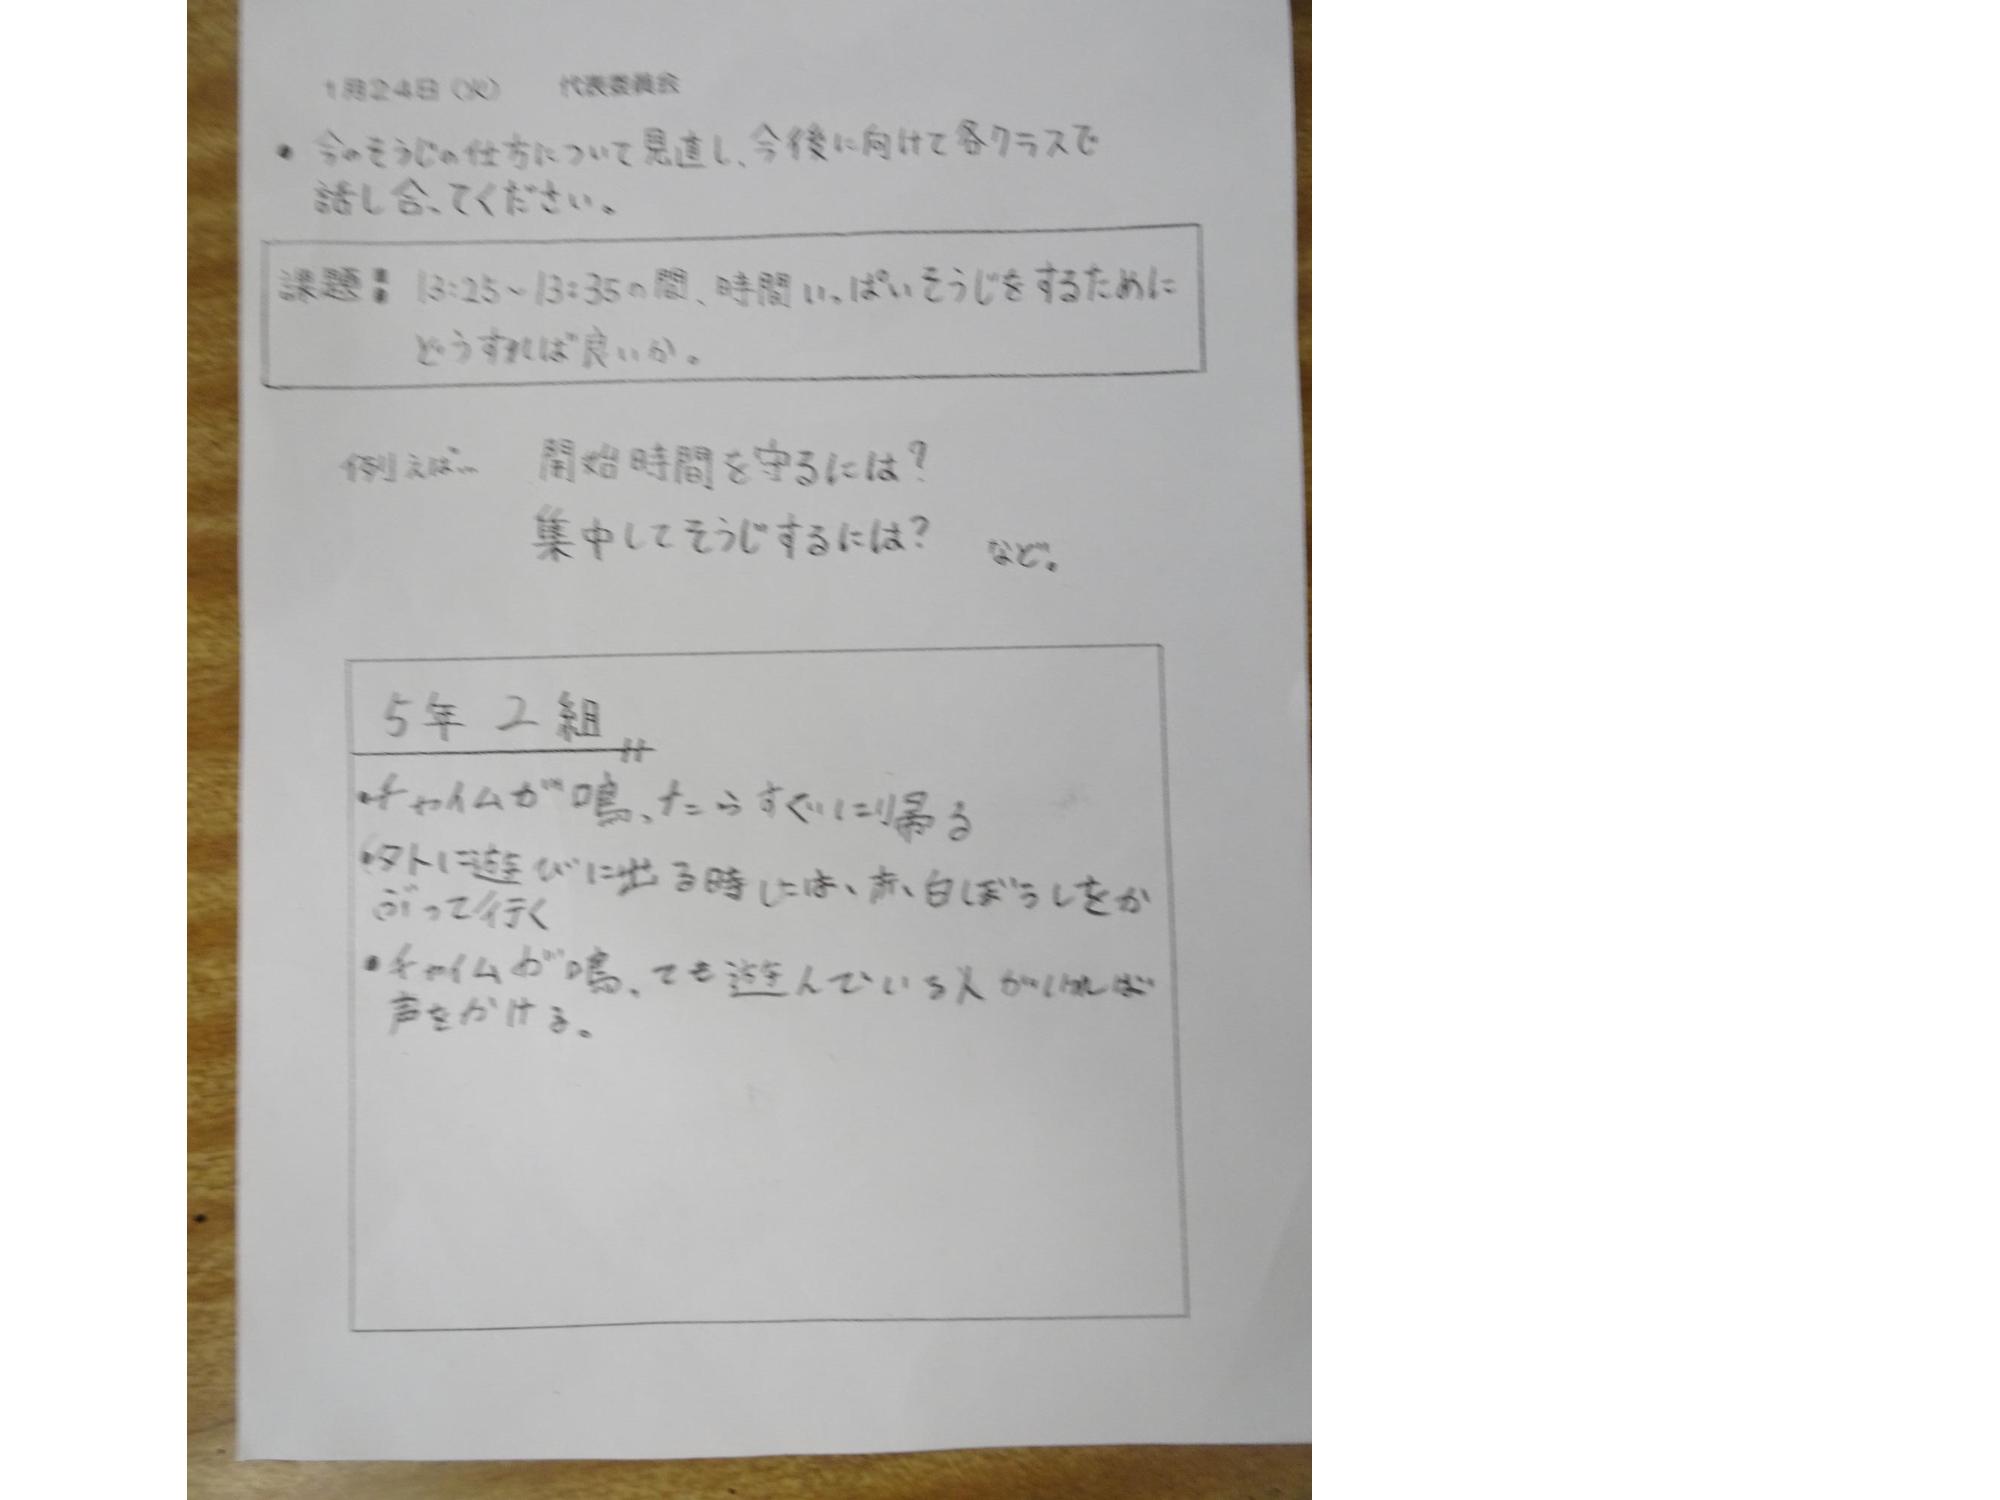 1月24日（火）　代表委員会
・今のそうじの仕方について見直し、今後に向けて各クラスで
話し合ってください。
課題：13:25～13:35の間、時間いっぱいそうじをするために
どうすれば良いか。
例えば…　開始時間を守るには？
集中してそうじするには？　など。
5年 2組
・チャイムが鳴ったらすぐに帰る
・外に遊びに出る時には、赤、白ぼうしをか
ぶって行く
・チャイムが鳴っても遊んでいる人がいれば
声をかける。